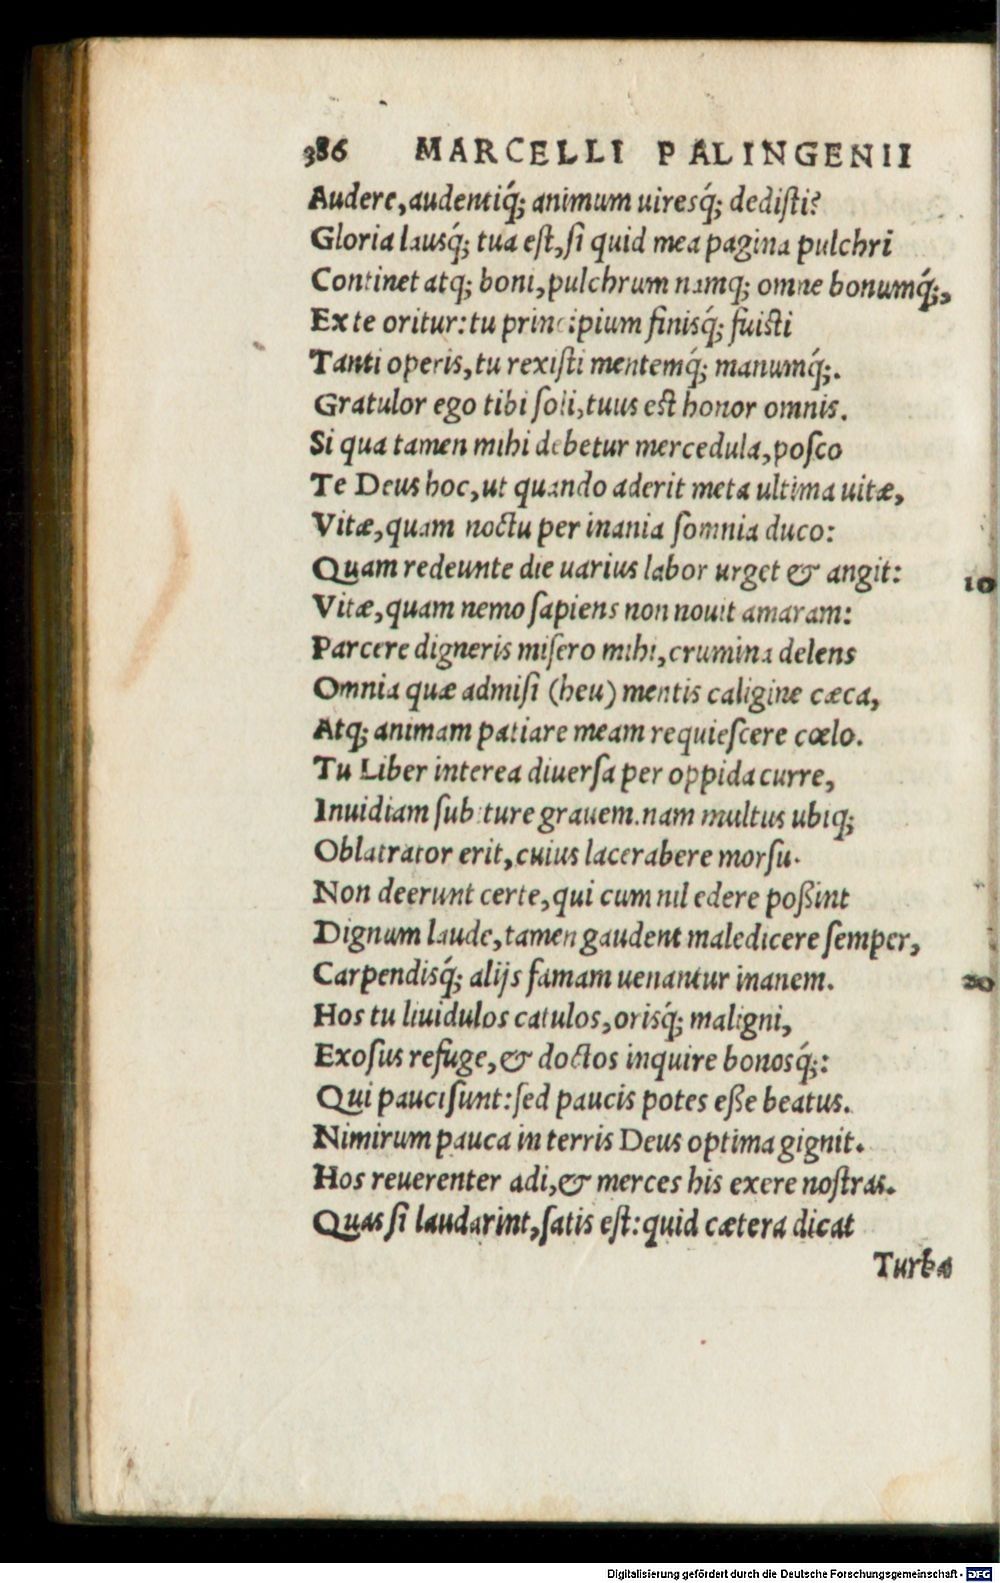 386 MARCELLI PALINGENII
Audere, audentiq́; animum uiresq́; dedisti?
Gloria lausq́; tua est, si quid mea pagina pulchri
Continet atq; boni, pulchrum namq; omne bonumq́;,
Ex te oritur: tu principium finisq́; fuisti
Tanti operis, tu rexisti mentemq́; manumq́;.
Gratulor ego tibi soli, tuus est honor omnis.
Si qua tamen mihi debetur mercedula, posco
Te Deus hoc, ut quando aderit meta ultima uitæ,
Vitæ, quam noctu per inania somnia duco:
Quam redeunte die uarius labor urget & angit: 10
Vitæ, quam nemo sapiens non nouit amaram:
Parcere digneris misero mihi, crumina delens
Omnia quæ admisi (heu) mentis caligine cæca,
Atq; animam patiare meam requiescere cœlo.
Tu Liber interea diuersa per oppida curre,
Inuidiam subiture grauem. nam multus ubiq;
Oblatrator erit, cuius lacerabere morsu.
Non deerunt certe, qui cum nil edere poßint
Dignum laude, tamen gaudent maledicere semper,
Carpendisq́; alijs famam uenantur inanem. 20
Hos tu liuidulos catulos, orisq́; maligni,
Exosus refuge, & doctos inquire bonosq́;:
Qui pauci sunt: sed paucis potes eße beatus.
Nimirum pauca in terris Deus optima gignit.
Hos reuerenter adi, & merces his exere nostras.
Quas si laudarint, satis est: quid cætera dicat
Turba
Digitalisierung gefördert durch die Deutsche Forschungsgemeinschaft - DFG